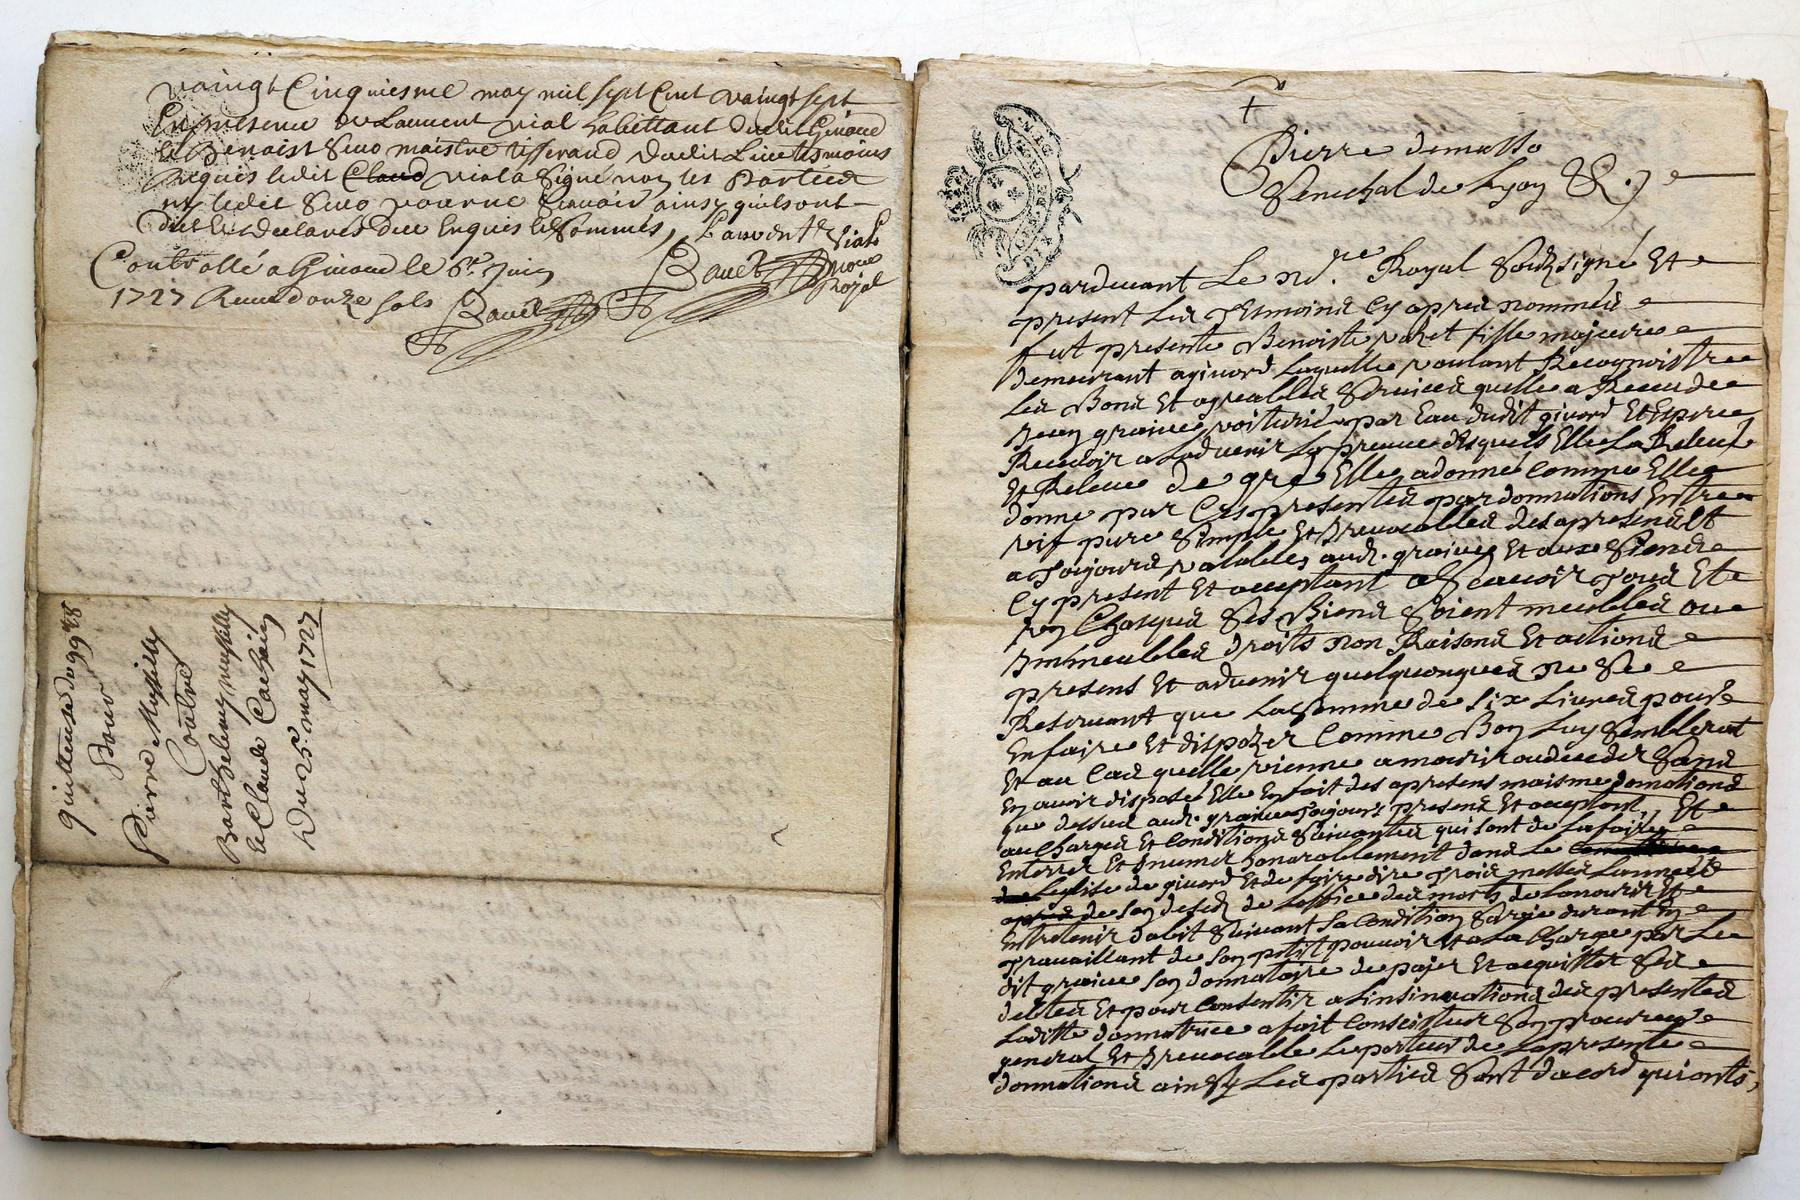 vaingt Cinquiesme may mil sept Cent vaingt sept
En presence de Laurent vial habittant dudit Givord
et Benoist maistre tisserand dudit Lieu tesmoins
requis ledit Claud vial a signé non les Parties
ny ledit pour ne sçavoir ainsy quils ont
dit Et declarés deue Enquis et sommés, Lauvent Vial
Controllé a Givord le 6.e Juin
1727 Receu douze sols
nore
Royal
quittense de 99tt 8s
Pour
Pierre
Contre
Barthelemy
et Claude
Du 25e may 1727
Pierre demasso
Senechal de Lyon &.
pardevant Le Nre. Royal Soubzsigné Et
present Les Tesmoins Cy apres nommés
fut presente Benoiste fille majeure
demeurant a givord Laquelle voulant Recognoistre
Les Bons Et agreables Services quelle a Receu de
Jean graive voiturié par Eau dudit givord Et Espere
Recevoir a Ladvenir La preuve desquels Elle La Releve
Et Releve de gré Elle a donné Comme Elle
donne par Ces presentes par donnations Entre
vif pure Simple Et Irrevocables des apresens Et
a Toujours valables aud. graive Et aux Siens
Cy present Et acceptant a Scavoir Tous Et
un Chasques Ses Biens Soient meubles ou
Immeubles droits non Raisons Et actions
presens Et advenir quelquonques ne Se
Reservant que La Somme de Six Livres pour
En faire Et dispozer Comme Bon Luy Semblerat
Et au Cas quelle vienne a mourir ou deceder Sans
En avoir disposé Elle En fait des apresens maisme donations
que dessus aud. graive Toujours present Et acceptant, Et
au Charges Et Conditions Suivantes qui sont de La faire
Enterrer Et Inumer honorablement dans Le
Leglise de givord Et de faire dire Trois messes Lannée
de Son desed de Loffice des morts de La nourir Et
Entretenir dabit Suivant Sa Condition Sa vie durant En
Travaillant de Son petit pouvoir Et a La Charge par Le
dit graive Son donnataire de pajer Et acquitter Ses
debtes Et pour Consentir a Linsinuations des presentes
Laditte donnatrice a fait Constituer Son procureur
general Et Irrevocable Le porteur de La presente
donnations ainsy Les parties Sont dacord qui onts